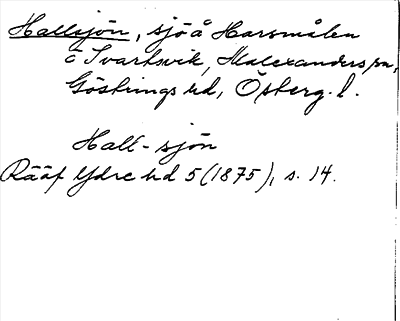 Hallsjön, sjö å Harsmålen
o Svartsvik, Malexanders sn,
Göstrings hd, Österg. l.
Hall-sjön
Rääf Ydre hd 5 (1875), s. 14.